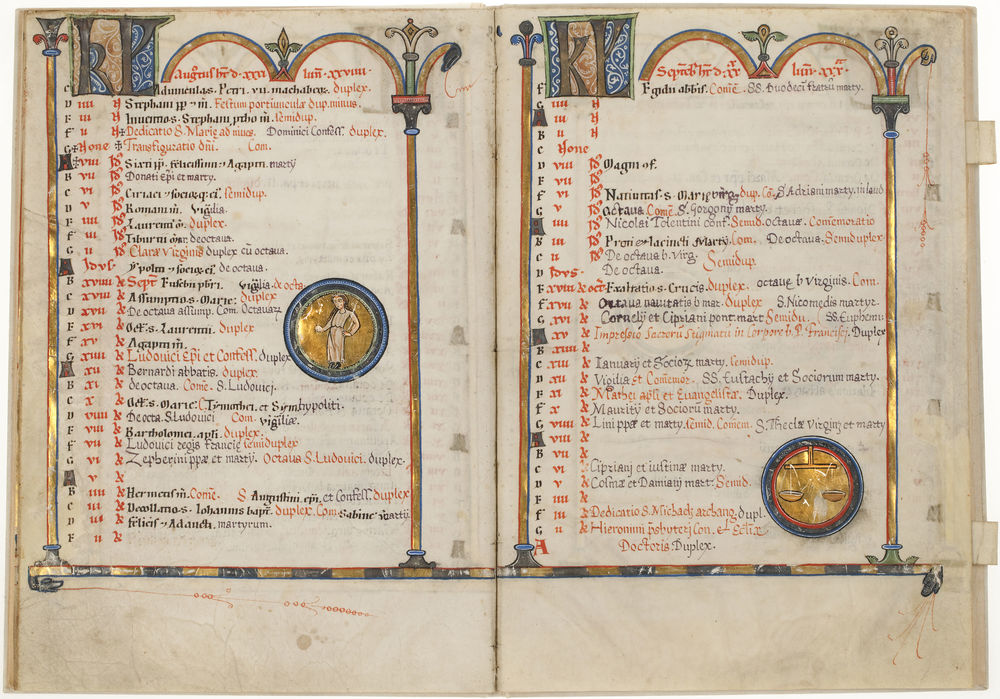 KL
Augustus ht d· xxxi lun· xxviiii·
C Advinculas. Petri. vii. machabeor. duplex.
D iiii N Stephani pp & m. Festum portiunculæ dup. minus.
E iii N Inuentio s. Stephani ptho m. semidup.
F ii N Dedicatio S. Marie ad niues. Dominici Confess. duplex.
G None Transfiguratio dñi. Com.
A viii Id Sixti pp. felicissimi & Agapiti marty
B vii Id Donati Epi et marty.
C vi Id Ciriaci & socioꝝ eiꝰ. semidup.
D v Id Romani m. Vigilia.
E iiii Id Laurentii m. duplex.
F iii Id Tiburtii m̃r de octaua.
G ii Id Claræ Virginis duplex cũ octaua.
A Idus Ypoliti & socioꝝ eiꝰ. de octaua.
B xviiii kł Sept Eusebii pbri. Vigilia de octa
C xviii kł Assumptio s. Marie: duplex
D xvii kł De octaua assump. Com. Octauaꝝ
E xvi kł Oct. s. Laurentii. duplex
F xv kł Agapiti m.
G xiiii kł Ludouici Epi et Confess. duplex
A xiii kł Bernardi abbatis. duplex.
B xii kł de octaua. Come. S. Ludouici.
C xi kł Oct. s. Marie: C. Timothei. et Symhypoliti.
D x kł De octa. S. Ludouici Com. vigiliæ.
E viiii kł Bartholomei. apłi. duplex.
F viii kł Ludouici regis franciæ semiduplex
G vii kł Zepherini ppæ et marty. Octaua S. Ludouici. duplex.
A vi kł
B v kł Hermetis m. Come. S Augustini. epi, et Confess. duplex
C iiii kł Decollatio s. Iohannis bapt. duplex. Com. Sabine marty
D iii kł felicis & Adaucti. martyrum.
E ii kł
KL
Septemb ht d· xxx lun· xxx·
F Egidii abbis. Come. SS. duodeci fratrũ marty.
G iiii N
A iii N
B ii N
C None
D viii Id Magni of.
E vii Id
F vi Id Natiuitas s. Marie virg. dup. Co. S Adriani marty. in laud
G v Id Octaua. Come. S. Gorgonij marty.
A iiii Id Nicolai Tolentini conf. Semid. octauæ. Comemoratio
B iii Id Proti & Iacincti Marty. Com. De octaua. Semiduplex.
C ii Id De octaua b. Virg. Semidup.
D Idus De octaua.
E xviii kł oct Exaltatio s. Crucis. duplex. octauæ b Virginis. Com.
F xvii kł Octaua natiuitatis b mar. Duplex S. Nicomedis martyr.
G xvi kł Cornelij et Cipriani pont. mart Semidu. SS. Euphemiæ
A xv kł Impressio Sacrorũ Stigmatũ in Corpore b. P. Francisci. Duplex
B xiiii kł
C xiii kł Ianuarij et Socioꝝ marty. semidup.
D xii kł Vigilia et Comemor. SS. Eustachij et Sociorum marty.
E xi kł Mathei apłi et Euangelistæ. Duplex.
F x kł Mauritij et Sociorũ marty.
G viiii kł Lini ppæ et marty. semid. Comem. S. Theclæ Virginis et marty
A viii kł
B vii kł
C vi kł Cipriani et iustinæ marty.
D v kł Cosmæ et Damianj mart. Semid.
E iiii kł
F iii kł Dedicatio S. Michaelj archang. dupl.
G ii kł Hieronimi psbuterj Con. et Ecliæ
A Doctoris Duplex.